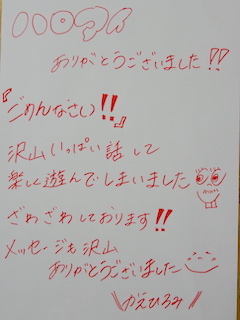 ありがとうございました!!
『ごめんなさい!!』
沢山いっぱい話して
楽しく遊んでしまいました
ざわざわしております!!
メッセージも沢山
ありがとうございました